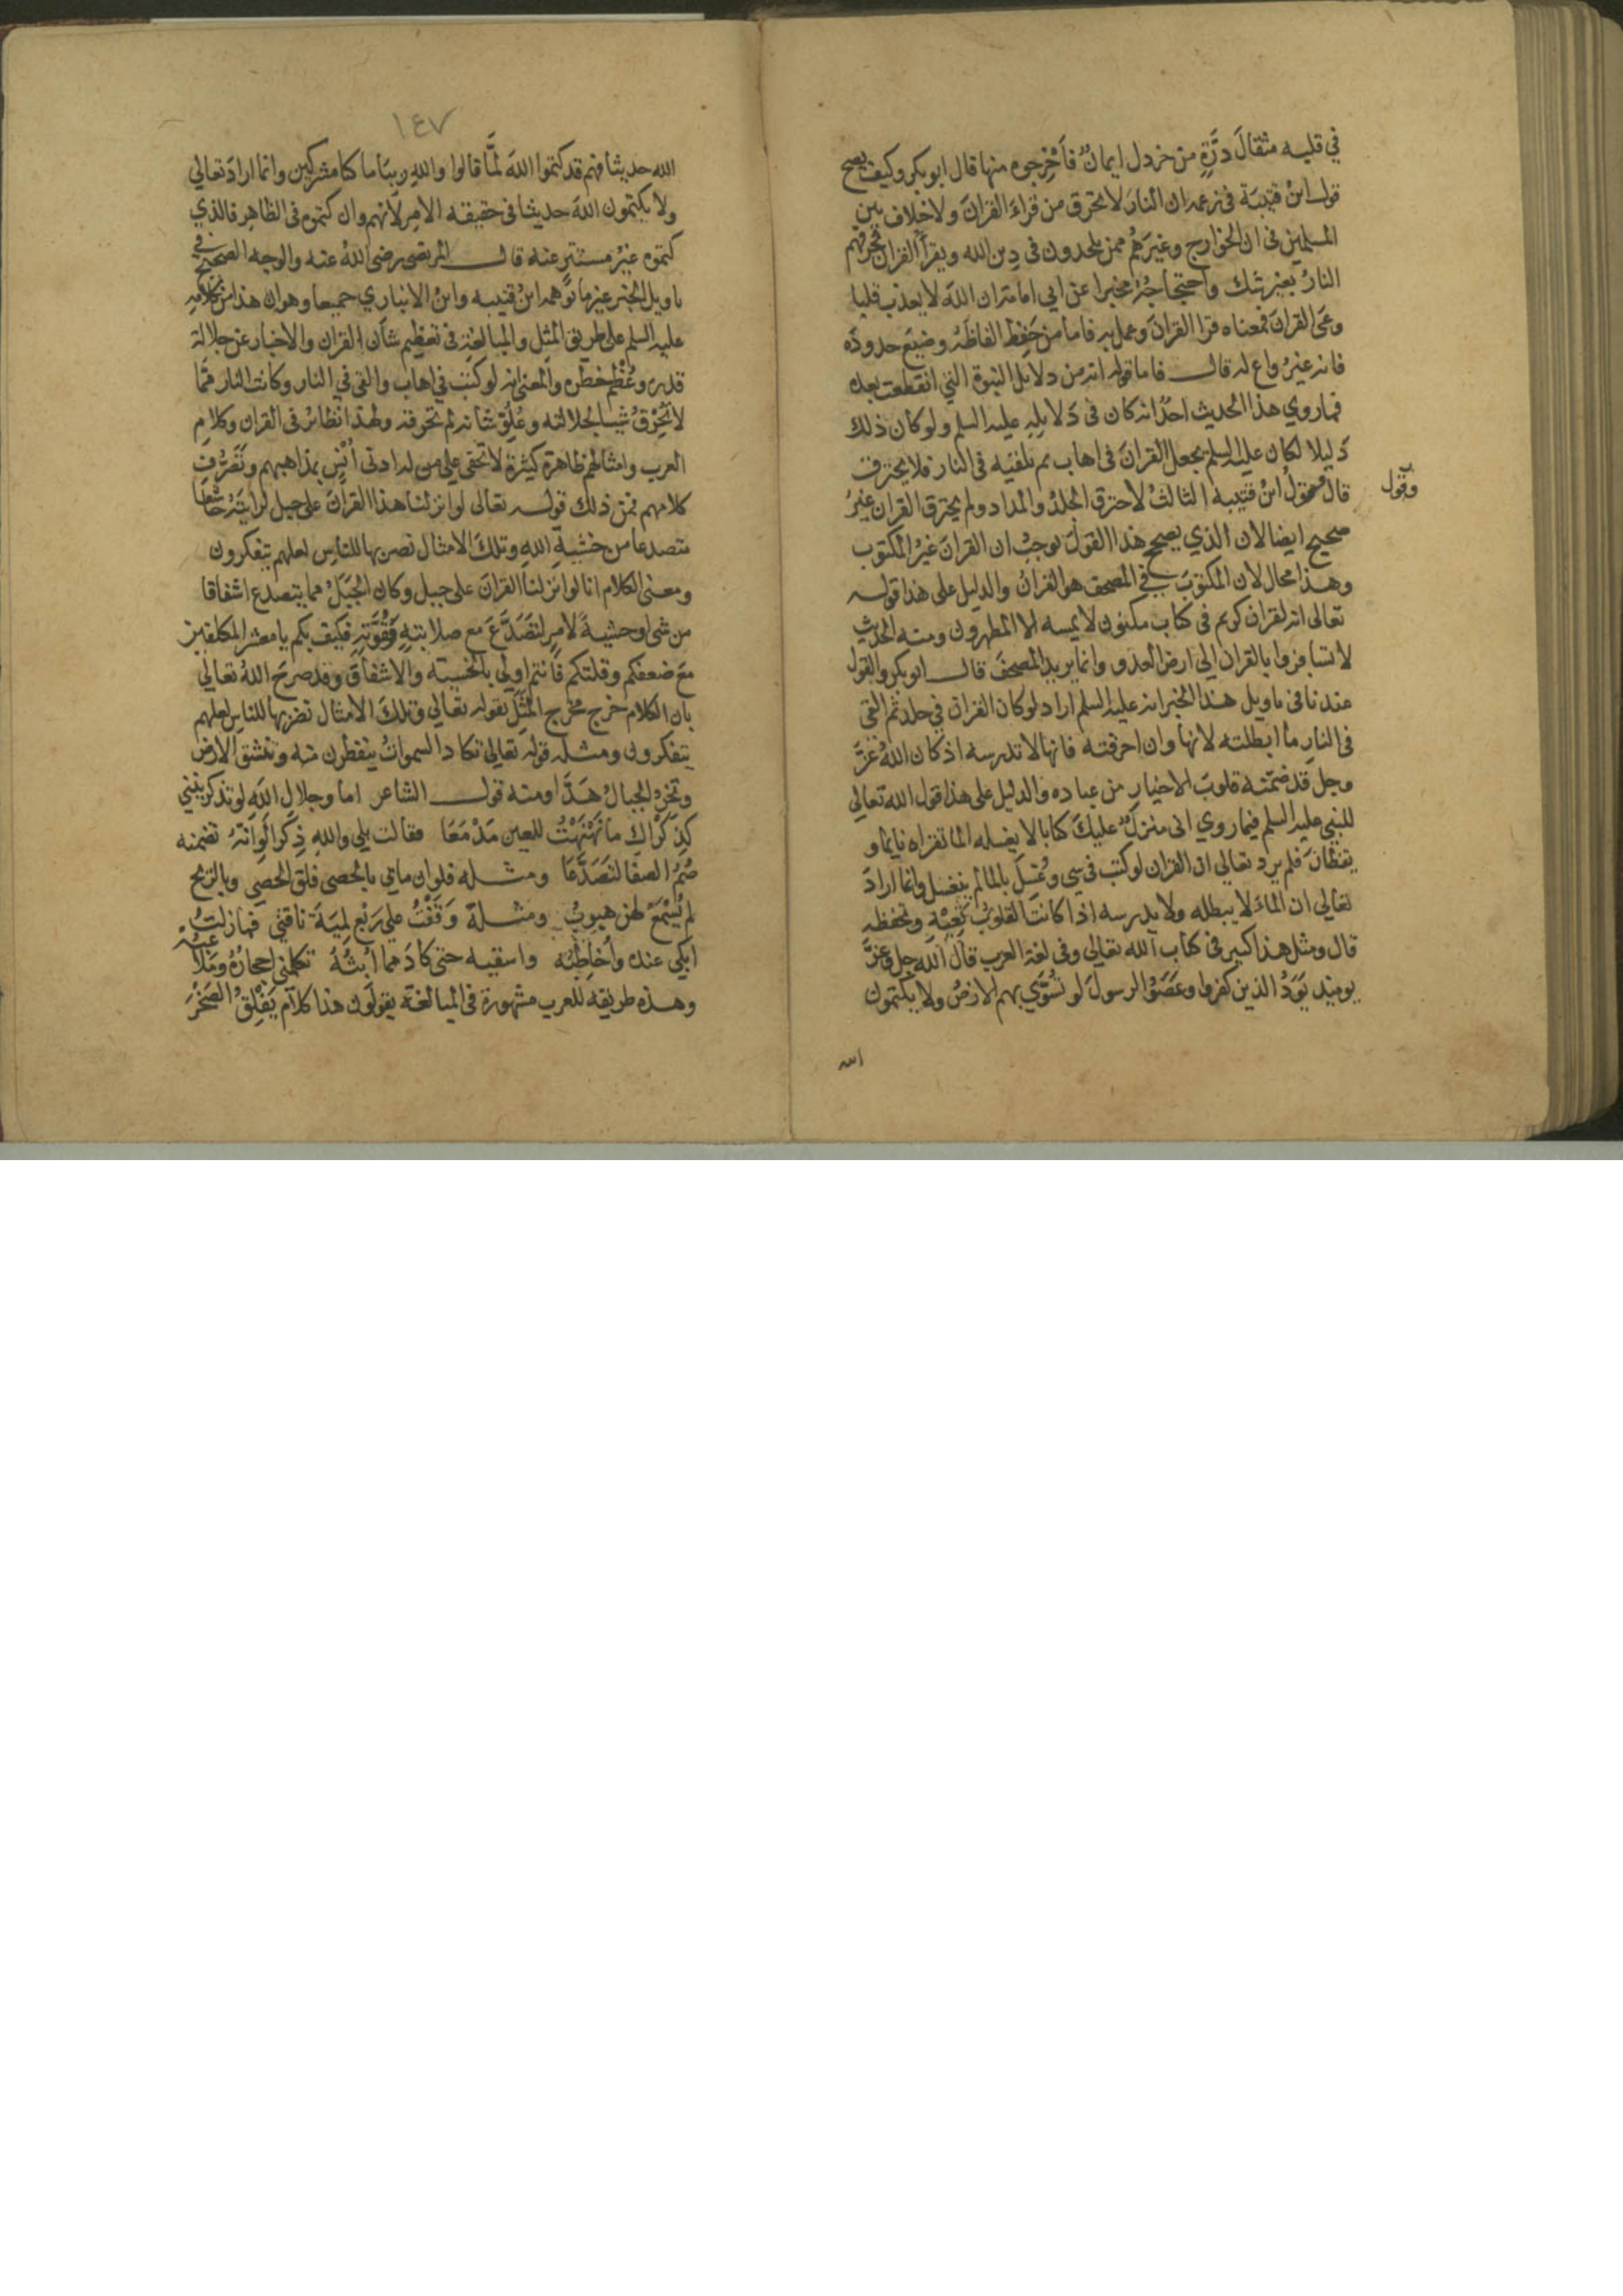 في قلبه مثقالَ ذرَّةٍ من خردل ايمانٌ فأَخْرِجوه منها قال ابو بكر وكيف يصح
قول ابنُ قتيبَة في زعمه ان النارَ لا تحرق من قراءَ القرانَ ولا خِلاف بين
المسلمين في ان الخوارج وغيرَهُم ممن يلحدون في دِين الله ويقرأُ القرانَ تُحرقهم
النارُ بغير شك واحتجاجُهُ بخبر ابي امامة ان اللهَ لا يعذب قلبا
وعَى القرانَ فمعناه قرا القرانَ وعمل به فاما من حَفِظ الفاظَهُ وضيّع حدودَه
فانه غيرُ واعٍ له قال فاما قوله انه من دلايل النبوة التي انقطعت بعده
فما روي هذا الحديث احدٌ انه كان في دَلايلِهِ عليه السلم ولو كان ذلك
دَليلا لكان عليه السلم يجعل القرانَ في اهاب ثم يلقيه في النار فلا يحترق
وقول
قال وقولُ ابنُ قتيبة الثالثُ لاحترق الجلدُ والمداد ولم يحترق القران غيرُ
صحيح ايضا لان الذي يصحح هذا القولَ يوجبُ ان القرانَ غيرُ المكتوب
وهذا محال لان المكتوبَ في المصحف هو القرانُ والدليل على هذا قوله
تعالى انه لقران كريم في كتاب مكنون لا يمسه الا المطهرون ومنه الحديث
لا تسافروا بالقران الي ارض العدو وانما يريد المصحفَ قال ابو بكر والقول
عندنا في تاويل هذا الخبر انه عليه السلم اراد لو كان القران في جلد ثم القي
في النارِ ما ابطلته لانها وان احرقته فانها لا تدرسه اذ كان اللهُ عَزَّ
وجل قد ضمّنه قلوبَ الاخيارِ من عباده والدليل على هذا قول الله تعالي
للنبي عليه السلم فيما روي اني منزلٌ عليكَ كتابا لا يغسله الما تقراه نايما و
يقظانَ فلم يرد تعالي ان القران لو كتب في شي وغُسِلَ بالما لم ينغسل وانما ارادَ
تعالي ان الماءَ لا يبطله ولا يدرسه اذا كانت القلوبُ تَعِيْهِ وتحفظه
قال ومثل هذا كبير في كتاب الله تعالي وفي لغة العرب قال الله جل وعَزَّ
يوميذ يَوَدُّ الذين كفروا وعَصَوُا الرسولَ لو تُسَوَّي بهم الارضُ ولا يكتمون
الله
١٤٧
الله حديثا فهم قد كتموا اللهَ لمَّا قالوا واللهِ ربِّنَا ما كنا مشركين وانما ارادَ تعالي
ولا يكتمون اللهَ حديثا في حقيقه الامر لانهم وان كتموه في الظاهِر فالذي
كتموه غيرُ مستترٍ عنه قال المرتضى رضي اللهُ عنه والوجه الصحيح في
تاويل الخبر غيرُ ما توَّهمه ابنُ قتيبه وابنُ الانباري جميعا وهو ان هذا من كلامِهِ
عليه السلم على طريق المثل والمبالغة في تعظيم شأن القران والاخبار عن جلالة
قدره وعُظْمِ خطره والمعنى انه لو كتب في اهاب والقي في النار وكانت النار ممّا
لا تُحْرِقُ شيئا لجلالته وعُلوّ شانه لم تحرقه ولهذا نظائرُ في القران وكلامِ
العرب وامثالهم ظاهرة كثيرة لا تخفى على من له ادنى أُنْسٍ بمذاهبهم وتَصَرُّفِ
كلامهم فمن ذلك قوله تعالى لو انزلنا هذا القرانَ على جبل لرايتَهُ خاشعا
متصدعا من خشيةِ اللهِ وتلكَ الامثال نضربها للناسِ لعلهم يتفكرون
ومعنى الكلام انا لو انزلنا القرانَ على جبل وكان الجَبَلُ مما يتصدع اشفاقا
من شى او خشيةً لامرٍ لتَصَدَّعَ مع صلابتهِ وقُوَّتهِ فكيف بكم يا معشر المكلفين
مَعَ ضعفكم وقلتكم فانتم اولي بالخشيته والاشفاقِ وقد صرحَ اللهُ تعالي
بان الكلام خرج مخرج المثَل بقوله تعالي وتلكَ الامثال نضربها للناس لعلهم
يتفكرون ومثله قوله تعالي تكاد السمواتُ يتفطرن منه وتنشق الارض
وتخِرّ الجبالُ هَدًّا ومنه قول الشاعر اما وجلالِ اللهِ لو تذكرينني
كذِكْراكِ ما نَهْنَهْتُ للعينِ مَدْمَعَا فقالت بلي واللهِ ذِكرا لَوَ انّهُ تضمنه
صُمُّ الصفا لتَصَدَّعَا ومثله فلو ان مابي بالحصى فلق الحصي وبالريح
لم يُسْمَعْ لهن هبوبُ ومثلهُ وَقَفْتُ علي رَبْعٍ لِمَيَّةَ ناقتي فما زلتُ
ابكي عنده وأخاطِبُه واسقيه حتى كادَ مما أبُثُّهُ تكلمني احجارُهُ ومَلاعبُهْ
وهذه طريقه للعرب مشهورة في المبالغة يقولون هذا كلامٌ يَفْلِقُ الصَخْرَ